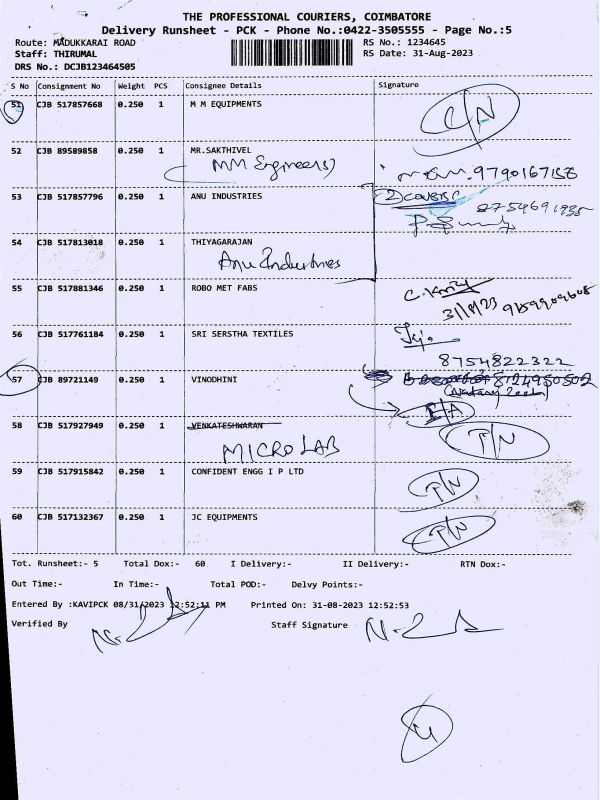 THE PROFESSIONAL COURIERS, COIMBATORE
Delivery Runsheet - PCK - Phone No.:0422-3505555 - Page No.:5
Route: MADUKKARAI ROAD RS No.: 1234645
Staff: THIRUMAL RS Date: 31-Aug-2023
DRS No.: DCJB123464505
S No Consignment No Weight PCS Consignee Details Signature
51 CJB 517857668 0.250 1 M M EQUIPMENTS C/N
52 CJB 89589858 0.250 1 MR.SAKTHIVEL
MM Engineers 9790167158
53 CJB 517857796 0.250 1 ANU INDUSTRIES 2 covers
8754691935
54 CJB 517813018 0.250 1 THIYAGARAJAN
Anu Industries
55 CJB 517881346 0.250 1 ROBO MET FABS
31/8/23
56 CJB 517761184 0.250 1 SRI SERSTHA TEXTILES
8754822322
57 CJB 89721149 0.250 1 VINODHINI 8124950502
58 CJB 517927949 0.250 1 VENKATESHWARAN
MICRO LAB P/N
59 CJB 517915842 0.250 1 CONFIDENT ENGG I P LTD P/N
60 CJB 517132367 0.250 1 JC EQUIPMENTS P/N
Tot. Runsheet:- 5 Total Dox:- 60 I Delivery:- II Delivery:- RTN Dox:-
Out Time:- In Time:- Total POD:- Delvy Points:-
Entered By :KAVIPCK 08/31/2023 12:52:11 PM Printed On: 31-08-2023 12:52:53
Verified By Staff Signature
4